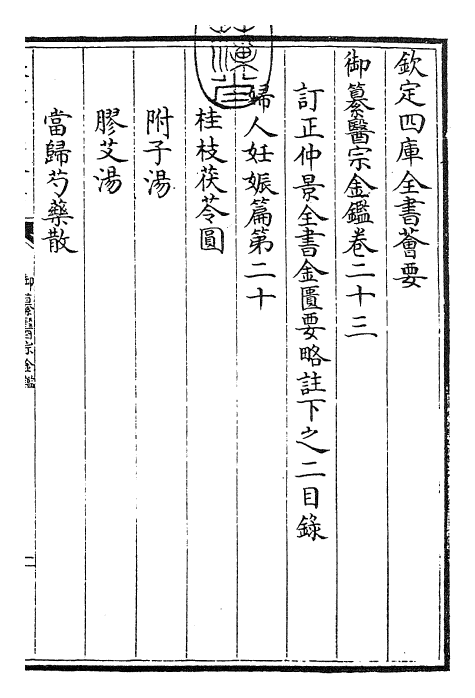 欽定四庫全書薈要
御纂醫宗金鑑卷二十三
訂正仲景全書金匱要略註下之二目錄
婦人妊娠篇第二十
桂枝茯苓圓
附子湯
膠艾湯
當歸芍藥散
御纂醫宗金鑑